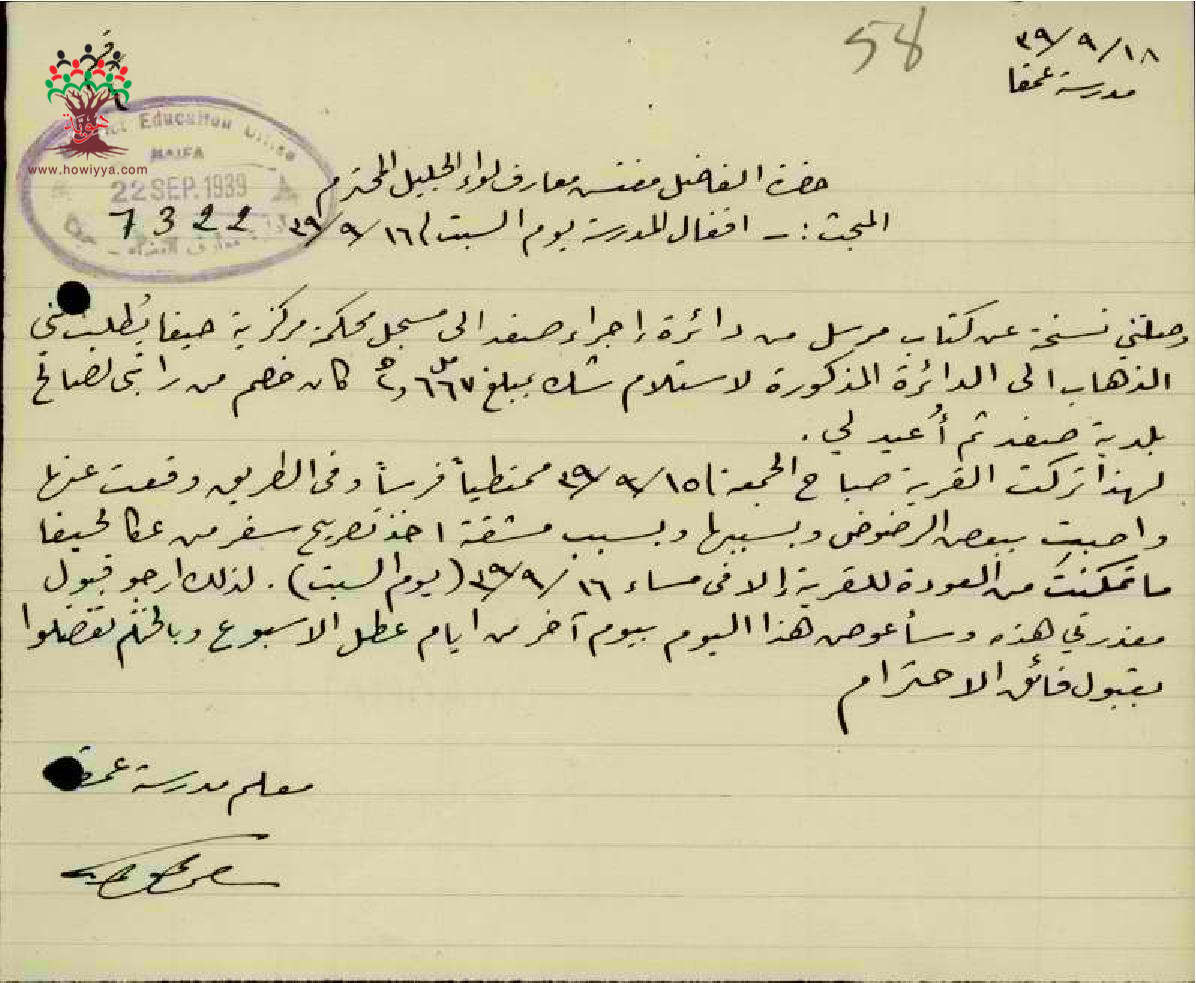 58
٣٩/٩/١٨
مدرسة عمقا
www.howiyya.com
District Education Office
HAIFA
22 SEP. 1939
7322
حضرة الفاضل مفتش معارف لواء الجليل المحترم
المبحث :- اقفال المدرسة يوم السبت ٣٩/٩/١٦
وصلتني نسخة عن كتاب مرسل من دائرة إجراء صفد الى مسجل محكمة مركزية حيفا يُطلب مني
الذهاب الى الدائرة المذكورة لاستلام شك بمبلغ ٦٦٧ مل كان خصم من راتبي لصالح
بلدية صفد ثم أُعيد لي .
لهذا تركت القرية صباح الجمعة ٣٩/٩/١٥ ممتطياً فرساً وفي الطريق وقعت عنها
واصبت ببعض الرضوض وبسببها وبسبب مشقة اخذ تصريح سفر من عكا لحيفا
ما تمكنت من العودة للقرية إلا في مساء ٣٩/٩/١٦ (يوم السبت) . لذلك ارجو قبول
معذرتي هذه وسأعوض هذا اليوم بيوم آخر من ايام عطل الاسبوع وبالختام تفضلوا
بقبول فائق الاحترام
معلم مدرسة عمقا